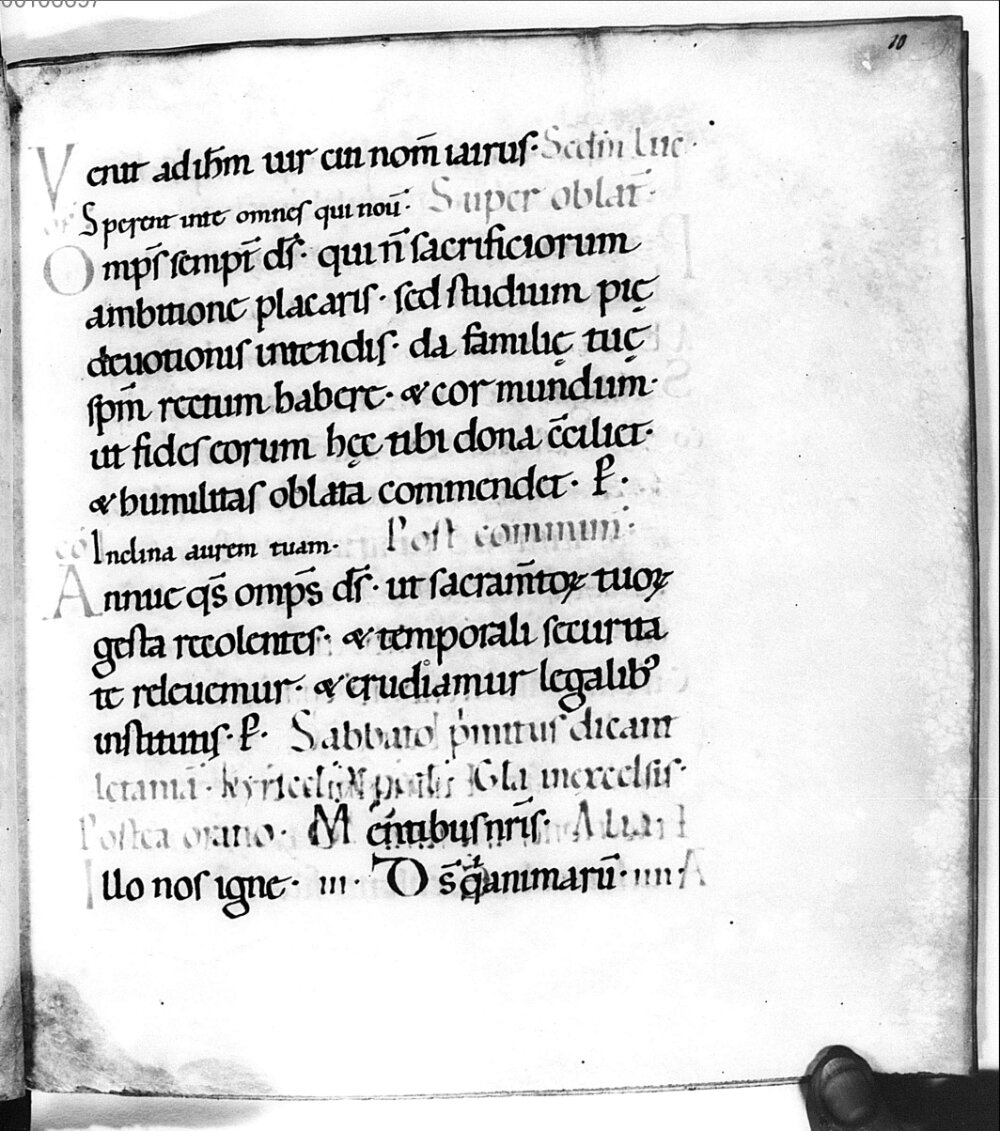 10
Venit ad ih̄m uir cui nom̄ iairus· Sed in Luc·
Sperent in te omnes qui nou̅· Super oblat̄·
Omp̄s sempt̄ d̄s· qui n̄ sacrificiorum
ambitione placaris· sed studium pię
deuotionis intendis· da familię tuę
sp̄m rectum habere· & cor mundum·
ut fides eorum hęc tibi dona c̄ciliet·
& humilitas oblata commendet· P̄·
cō Inclina aurem tuam· Post commun̄·
Annue q̄s omp̄s d̄s· ut sacram̄toꝝ tuoꝝ
gesta recolentes· & temporali securita
te releuemur· & erudiamur legalibꝰ
institutis· P̄· Sabbato p'mitus dicant
letania· kyrieel Gła in excelsis·
Postea oratio· M ēntibus nr̄is· Alia
Illo nos igne· iii· D s̄ q animarū· iiii· A